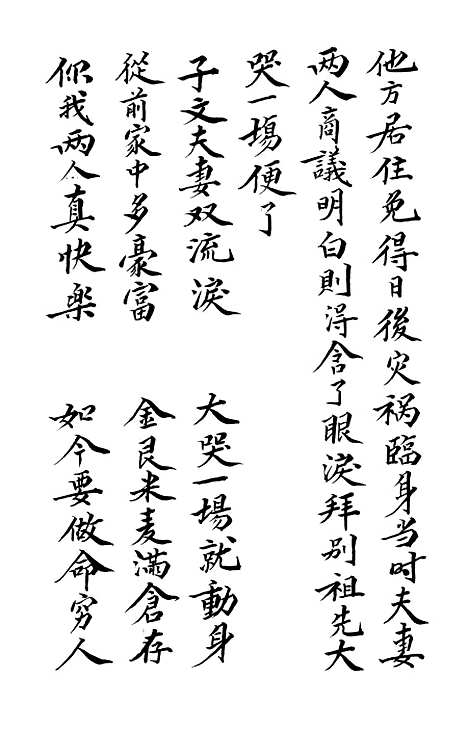 他方居住免得日後灾祸臨身当时夫妻
两人商議明白則得含了眼淚拜别祖先大
哭一場便了
子文夫妻双流淚　大哭一場就動身
從前家中多豪富　金艮米麦滿倉存
你我两人真快楽　如今要做命穷人